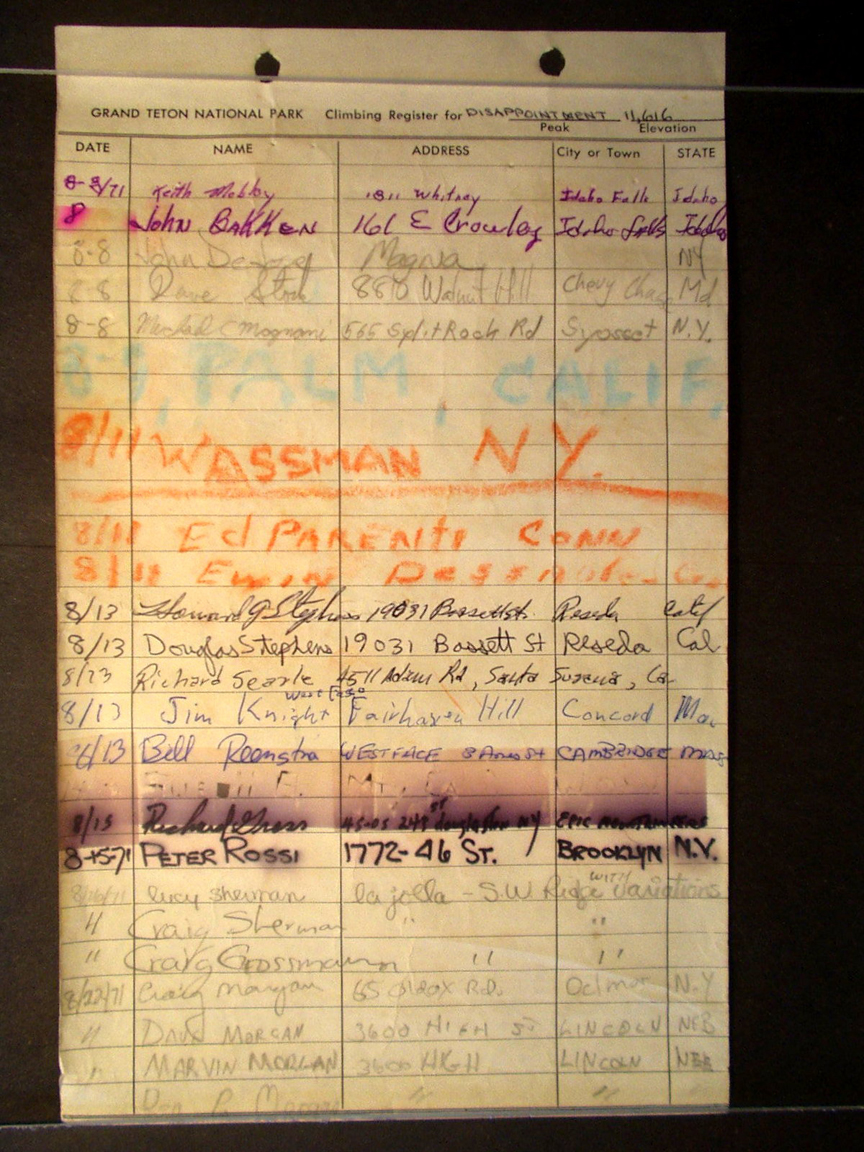 GRAND TETON NATIONAL PARK Climbing Register for DISAPPOINTMENT 11,616
Peak Elevation
DATE NAME ADDRESS City or Town STATE
8-8/71 Keith 1811 Whitney Idaho Falls Idaho
8 John BAKKEN 161 E Crowley Idaho Falls Idaho
8-8 John Magna NY
8-8 Dave 8810 Walnut Hill Chevy Chase Md
8-8 Michael C 565 Split Rock Rd Syosset N.Y.
8-8, PALM, CALIF.
8/11 WASSMAN N.Y.
8/11 Ed PARENTI CONN
8/11
8/13 Howard G Stephens 19031 Bassett St. Reseda Calif
8/13 Douglas Stephens 19031 Bassett St Reseda Cal
8/13 Richard Searle 4511 Adam Rd, Santa Susana, Ca
8/13 Jim Knight West Face Fairhaven Hill Concord Ma
8/13 Bill WEST FACE St CAMBRIDGE MASS
8/15 Richard 45-05 Douglaston NY EPIC MOUNTAINEERS
8-15-71 PETER ROSSI 1772-46 ST. BROOKLYN N.Y.
8/16/71 lucy sherman la jolla - S.W Ridge WITH variations
" Craig Sherman " "
" Craig Grossmann " "
8/22/71 Craig Morgan 65 Rd. N.Y
" DAVE MORGAN 3600 HIGH ST LINCOLN NEB
" MARVIN MORGAN 3600 HIGH LINCOLN NEB
" "